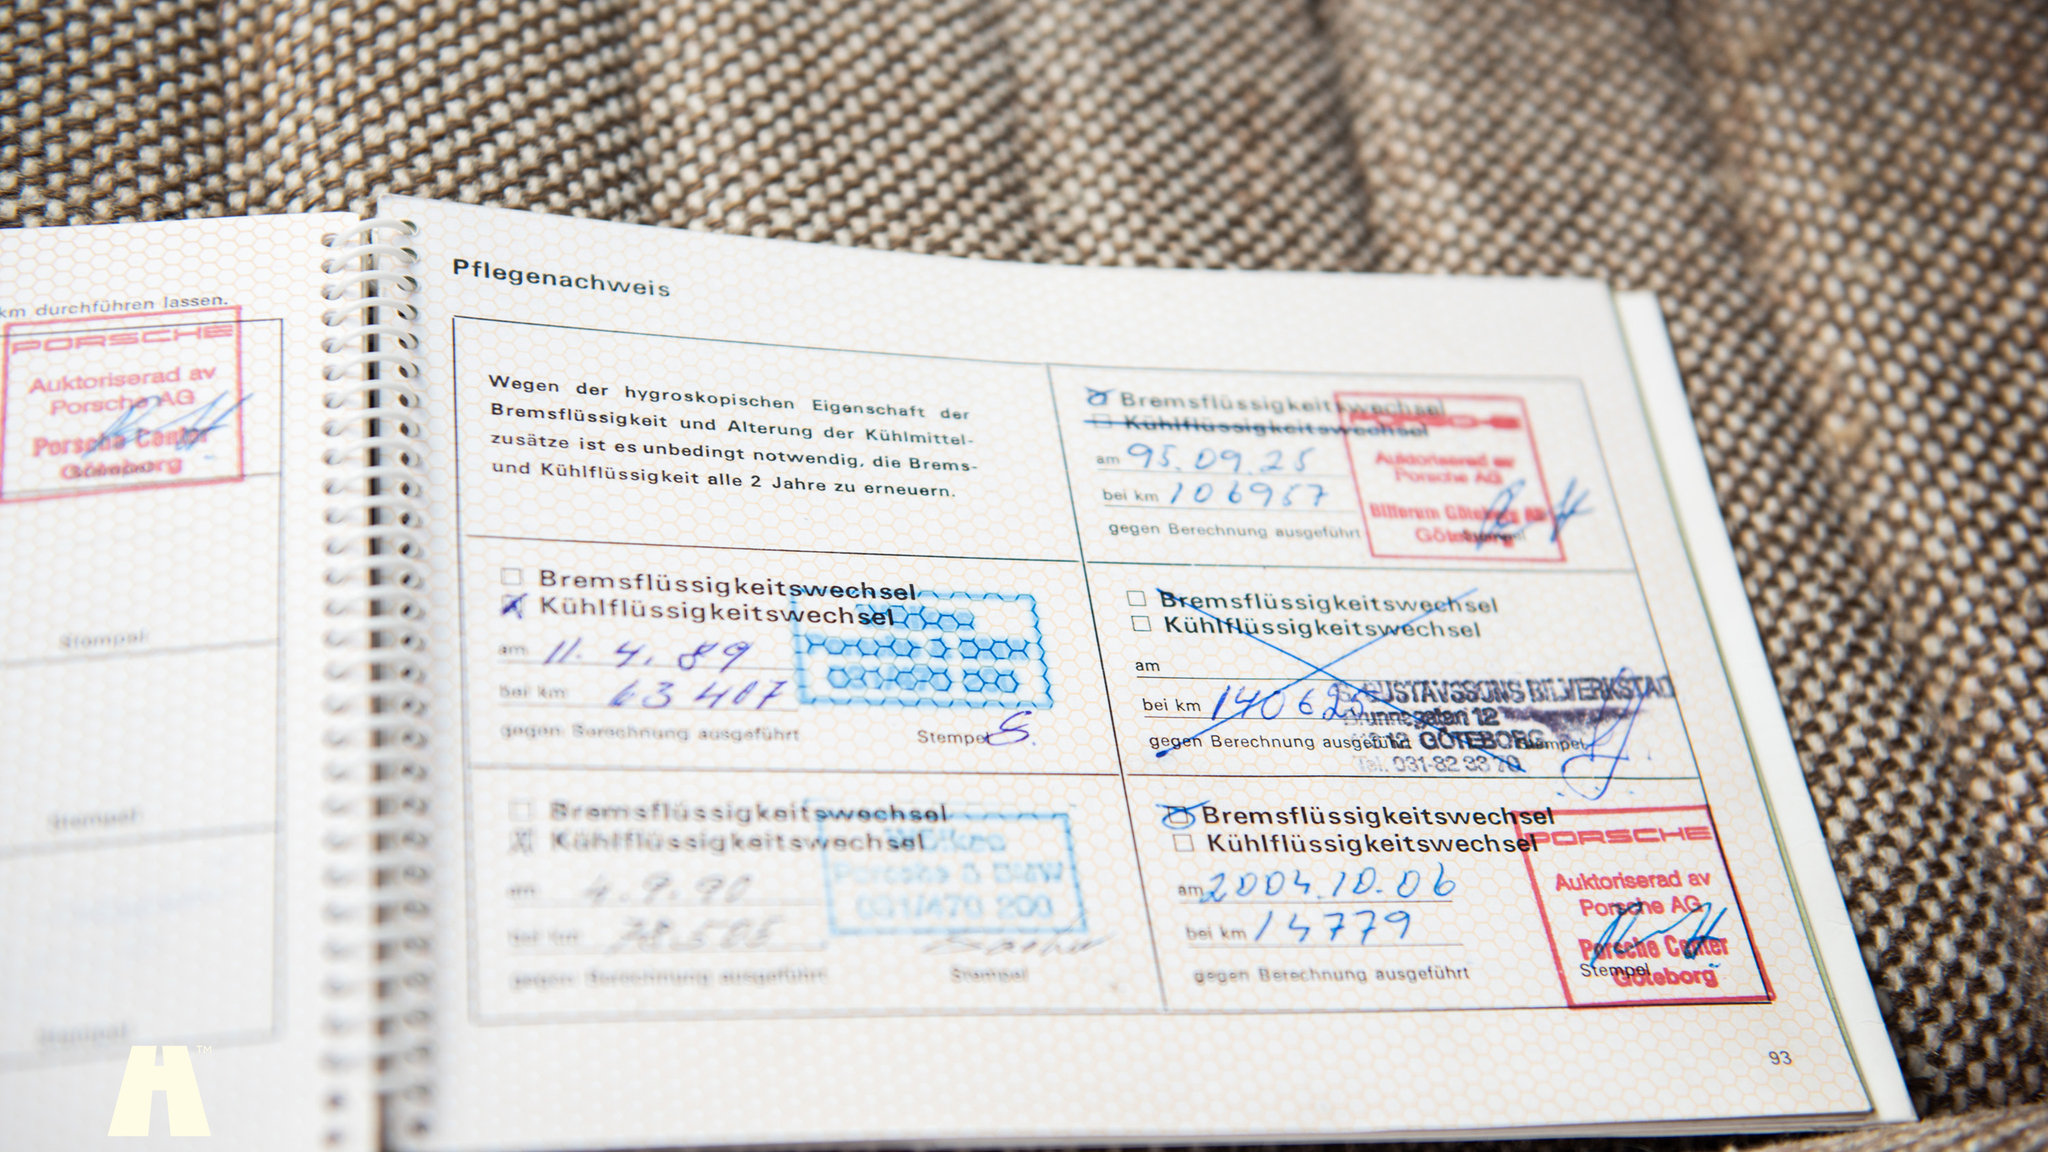 km durchführen lassen.
PORSCHE
Auktoriserad av
Porsche AG
Porsche Center
Göteborg
Stempel
Stempel
Stempel
Pflegenachweis
Wegen der hygroskopischen Eigenschaft der
Bremsflüssigkeit und Alterung der Kühlmittel-
zusätze ist es unbedingt notwendig, die Brems-
und Kühlflüssigkeit alle 2 Jahre zu erneuern.
Bremsflüssigkeitswechsel
Kühlflüssigkeitswechsel
am 11. 4. 89
bei km 63 407
gegen Berechnung ausgeführt
Stempel
Bremsflüssigkeitswechsel
Kühlflüssigkeitswechsel
am 4.9.90
bei km 78.505
gegen Berechnung ausgeführt
Stempel
Porsche & BMW
031/470 200
Bremsflüssigkeitswechsel
Kühlflüssigkeitswechsel
am 95.09.25
bei km 106957
gegen Berechnung ausgeführt
Auktoriserad av
Porsche AG
Bilforum Göteborg AB
Göteborg
Bremsflüssigkeitswechsel
Kühlflüssigkeitswechsel
am
bei km 140625
gegen Berechnung ausgeführt
Stempel
GUSTAVSSONS BILVERKSTAD
Brunnsgatan 12
GÖTEBORG
Tel. 031-82 33 70
Bremsflüssigkeitswechsel
Kühlflüssigkeitswechsel
am 2004.10.06
bei km 14779
gegen Berechnung ausgeführt
Stempel
PORSCHE
Auktoriserad av
Porsche AG
Porsche Center
Göteborg
93
H™